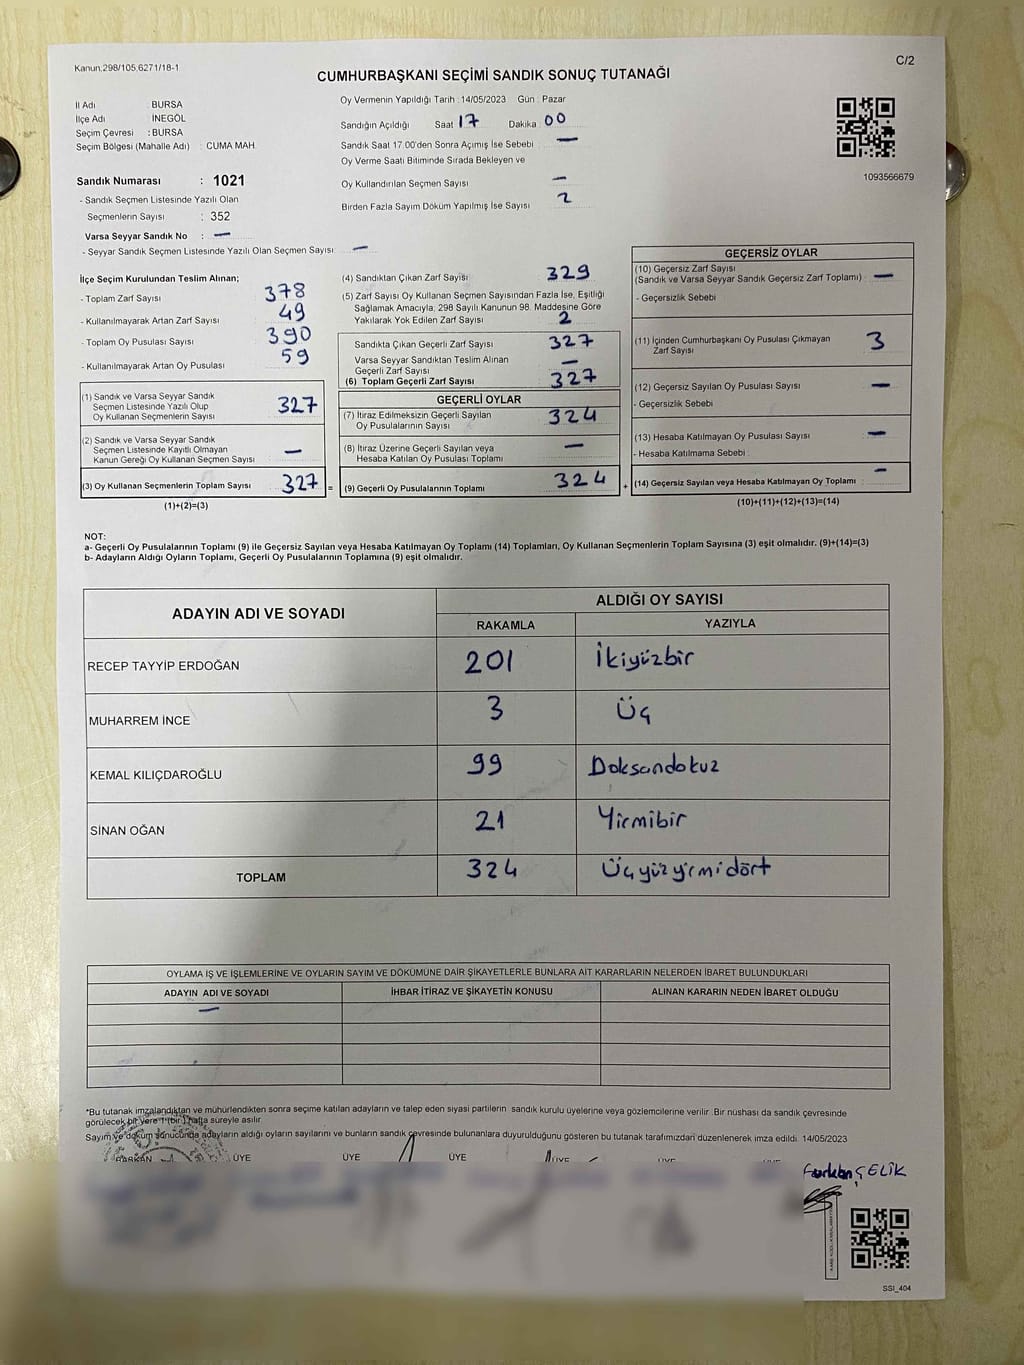 Kanun:298/105,6271/18-1
C/2
CUMHURBAŞKANI SEÇİMİ SANDIK SONUÇ TUTANAĞI
İl Adı : BURSA
İlçe Adı : İNEGÖL
Seçim Çevresi : BURSA
Seçim Bölgesi (Mahalle Adı) : CUMA MAH.
Oy Vermenin Yapıldığı Tarih : 14/05/2023 Gün : Pazar
Sandığın Açıldığı Saat 17 Dakika 00
Sandık Saat 17.00'den Sonra Açımış İse Sebebi —
Oy Verme Saati Bitiminde Sırada Bekleyen ve
Oy Kullandırılan Seçmen Sayısı —
Birden Fazla Sayım Döküm Yapılmış İse Sayısı 2
1093566679
Sandık Numarası : 1021
- Sandık Seçmen Listesinde Yazılı Olan
Seçmenlerin Sayısı : 352
Varsa Seyyar Sandık No : —
- Seyyar Sandık Seçmen Listesinde Yazılı Olan Seçmen Sayısı: —
İlçe Seçim Kurulundan Teslim Alınan;
- Toplam Zarf Sayısı 378
- Kullanılmayarak Artan Zarf Sayısı 49
- Toplam Oy Pusulası Sayısı 390
- Kullanılmayarak Artan Oy Pusulası 59
(1) Sandık ve Varsa Seyyar Sandık
Seçmen Listesinde Yazılı Olup
Oy Kullanan Seçmenlerin Sayısı 327
(2) Sandık ve Varsa Seyyar Sandık
Seçmen Listesinde Kayıtlı Olmayan
Kanun Gereği Oy Kullanan Seçmen Sayısı —
(3) Oy Kullanan Seçmenlerin Toplam Sayısı 327 =
(1)+(2)=(3)
(4) Sandıktan Çıkan Zarf Sayısı 329
(5) Zarf Sayısı Oy Kullanan Seçmen Sayısından Fazla İse, Eşitliği
Sağlamak Amacıyla, 298 Sayılı Kanunun 98. Maddesine Göre
Yakılarak Yok Edilen Zarf Sayısı 2
Sandıkta Çıkan Geçerli Zarf Sayısı 327
Varsa Seyyar Sandıktan Teslim Alınan
Geçerli Zarf Sayısı —
(6) Toplam Geçerli Zarf Sayısı 327
GEÇERLİ OYLAR
(7) İtiraz Edilmeksizin Geçerli Sayılan
Oy Pusulalarının Sayısı 324
(8) İtiraz Üzerine Geçerli Sayılan veya
Hesaba Katılan Oy Pusulası Toplamı —
(9) Geçerli Oy Pusulalarının Toplamı 324 +
GEÇERSİZ OYLAR
(10) Geçersiz Zarf Sayısı
(Sandık ve Varsa Seyyar Sandık Geçersiz Zarf Toplamı) —
- Geçersizlik Sebebi
(11) İçinden Cumhurbaşkanı Oy Pusulası Çıkmayan
Zarf Sayısı 3
(12) Geçersiz Sayılan Oy Pusulası Sayısı —
- Geçersizlik Sebebi
(13) Hesaba Katılmayan Oy Pusulası Sayısı —
- Hesaba Katılmama Sebebi :
(14) Geçersiz Sayılan veya Hesaba Katılmayan Oy Toplamı —
(10)+(11)+(12)+(13)=(14)
NOT:
a- Geçerli Oy Pusulalarının Toplamı (9) ile Geçersiz Sayılan veya Hesaba Katılmayan Oy Toplamı (14) Toplamları, Oy Kullanan Seçmenlerin Toplam Sayısına (3) eşit olmalıdır. (9)+(14)=(3)
b- Adayların Aldığı Oyların Toplamı, Geçerli Oy Pusulalarının Toplamına (9) eşit olmalıdır.
ADAYIN ADI VE SOYADI ALDIĞI OY SAYISI
RAKAMLA YAZIYLA
RECEP TAYYİP ERDOĞAN 201 İkiyüzbir
MUHARREM İNCE 3 Üç
KEMAL KILIÇDAROĞLU 99 Doksandokuz
SİNAN OĞAN 21 Yirmibir
TOPLAM 324 Üçyüzyirmidört
OYLAMA İŞ VE İŞLEMLERİNE VE OYLARIN SAYIM VE DÖKÜMÜNE DAİR ŞİKAYETLERLE BUNLARA AİT KARARLARIN NELERDEN İBARET BULUNDUKLARI
ADAYIN ADI VE SOYADI İHBAR İTİRAZ VE ŞİKAYETİN KONUSU ALINAN KARARIN NEDEN İBARET OLDUĞU
—
*Bu tutanak imzalandıktan ve mühürlendikten sonra seçime katılan adayların ve talep eden siyasi partilerin sandık kurulu üyelerine veya gözlemcilerine verilir. Bir nüshası da sandık çevresinde
görülecek bir yere 1 (bir) hafta süreyle asılır.
Sayım ve döküm sonucunda adayların aldığı oyların sayılarını ve bunların sandık çevresinde bulunanlara duyurulduğunu gösteren bu tutanak tarafımızdan düzenlenerek imza edildi. 14/05/2023
BAŞKAN ÜYE ÜYE ÜYE ÜYE
Furkan ÇELİK
SSI_404